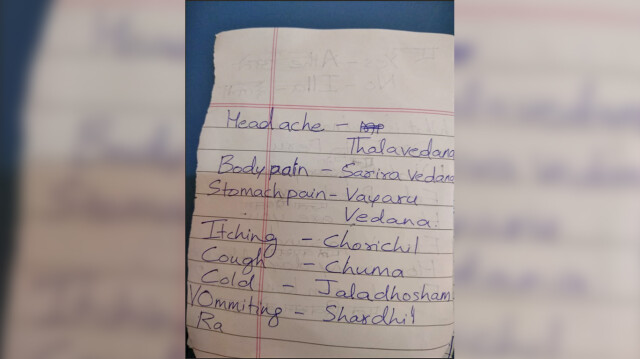 Headache -
Thalavedana
Bodypain - Sarira vedana
Stomachpain - Vayaru
Vedana.
Itching - Chorichil
Cough - Chuma
Cold - Jaladhosham
VOmmiting - Shardhil
Ra